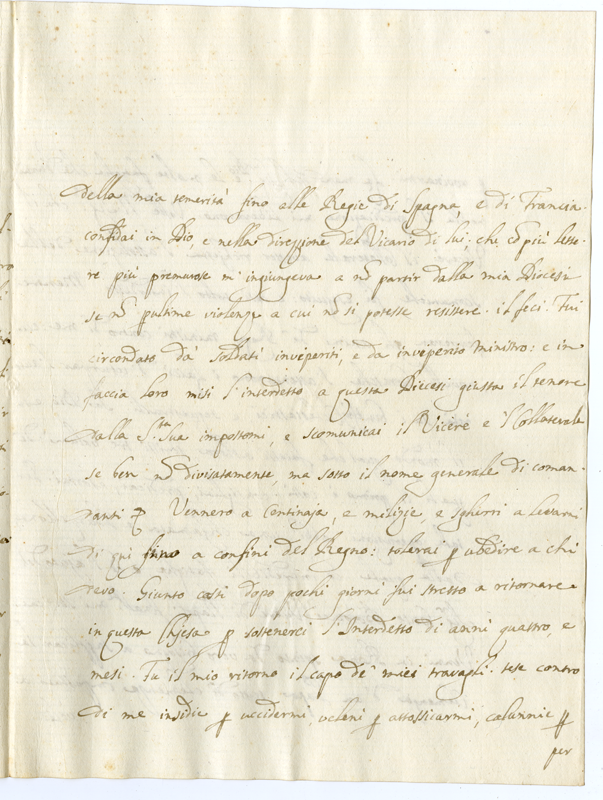 della mia temerità sino alle Regie di Spagna, e di Francia.
confidai in Dio, e nella direzzione del Vicario di lui, che cō più lette-
re più premurose m'ingiungeva a nō partir dalla mia Diocesi
se nō p ultime violenze a cui nō si potesse resistere. il feci. Fui
circondato da soldati inviperiti, e da inviperito Ministro: e in
faccia loro misi l'interdetto a questa Diocesi giusta il tenore
dalla S.tà Sua impostomi, e scomunicai il Vicerè e 'l Collaterale
se ben nō divisatamente, ma sotto il nome generale di coman-
danti
Vennero a Centinaja, e milizie, e sgherri a levarmi
di qui sino a confini del Regno: tolerai p ubedire a chi
devo. Giunto costì dopo pochi giorni fui stretto a ritornare
in questa Chjesa p sostenerci l'Interdetto di anni quattro, e
mesi. Fu il mio ritorno il capo de' miei travagli. tese contro
di me insidie p uccidermi, veleni p attossicarmi, calunnie p
per